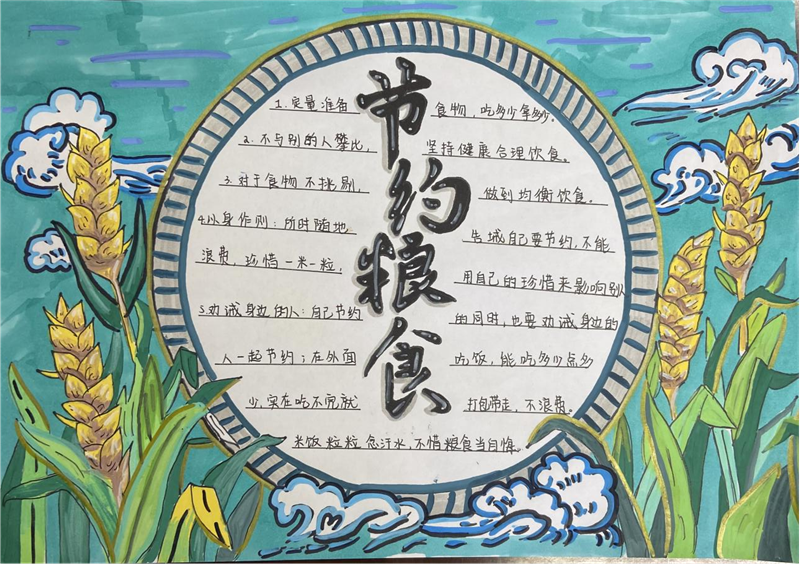 节约粮食
1.定量准备食物，吃多少拿多少。
2.不与别的人攀比，坚持健康合理饮食。
3.对于食物不挑剔，做到均衡饮食。
4.以身作则：所时随地告诫自己要节约，不能
浪费，珍惜一米一粒，用自己的珍惜来影响别人
5.劝诫身边的人：自己节约的同时，也要劝诫身边的
人一起节约；在外面吃饭，能吃多少点多
少，实在吃不完就打包带走，不浪费。
米饭粒粒念汗水，不惜粮食当自悔。